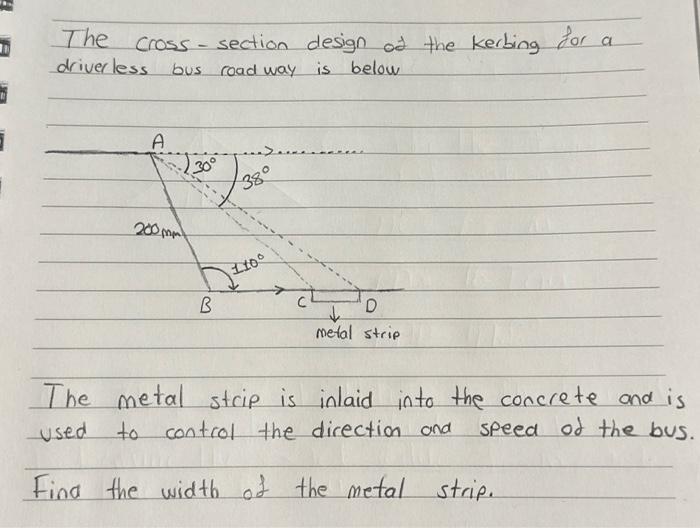 The cross-section design of the kerbing for a
driverless bus roadway is below
A
30°
38°
200mm
110°
B
C
D
metal strip
The metal strip is inlaid into the concrete and is
used to control the direction and speed of the bus.
Find the width of the metal strip.